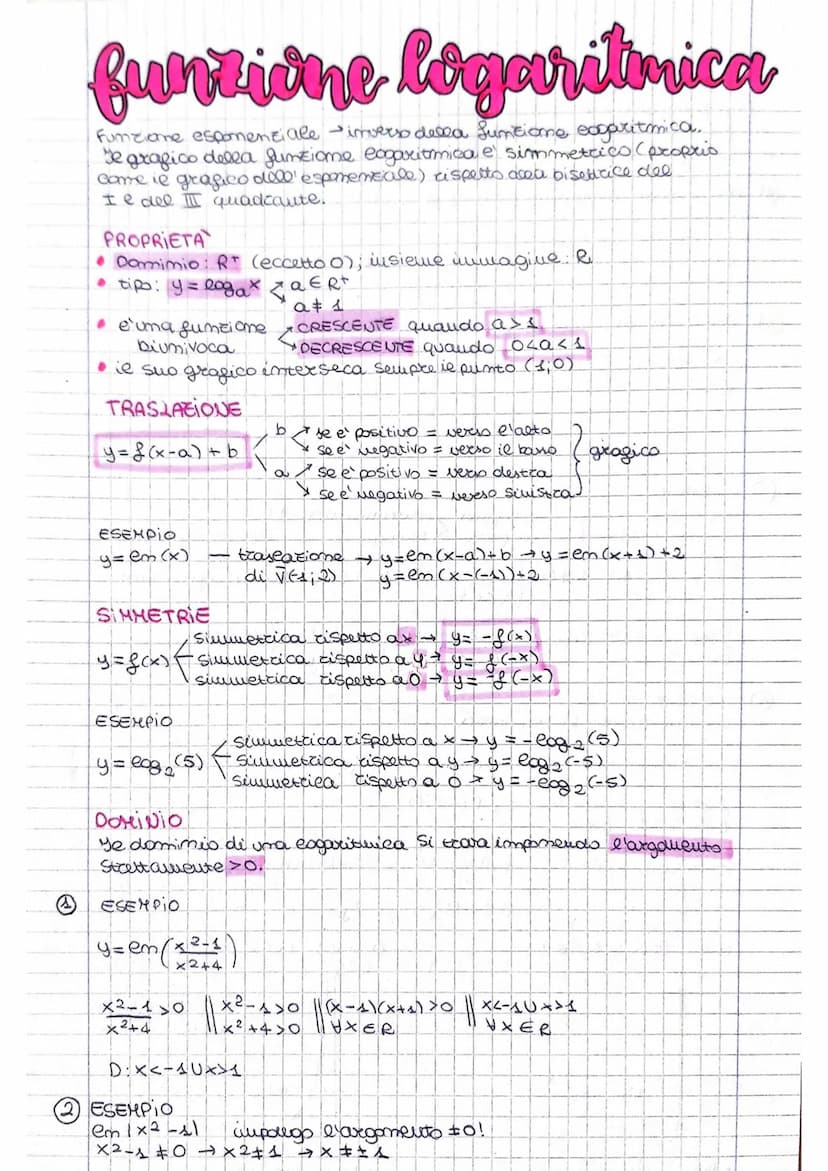 funzione logaritmica
Funzione esponenziale → inverso della funzione logaritmica.
Il grafico della funzione logaritmica è simmetrico (proprio
come il grafico dell'esponenziale) rispetto alla bisettrice del
I e del III quadrante.
PROPRIETÀ
• Dominio: R⁺ (eccetto 0); insieme immagine: R
• tipo: y = logₐx ↗ a ∈ R⁺
↘ a ≠ 1
• è una funzione ↗ CRESCENTE quando a > 1
biunivoca ↘ DECRESCENTE quando 0<a<1
• il suo grafico interseca sempre il punto (1;0)
TRASLAZIONE
b ↗ se è positivo = verso l'alto
y = f(x-a) + b ↘ se è negativo = verso il basso } grafico
a ↗ se è positivo = verso destra
↘ se è negativo = verso sinistra
ESEMPIO
y = ln(x) — traslazione → y=ln(x-a)+b → y = ln(x+1)+2
di V̄(-1;2) y=ln(x-(-1))+2
SIMMETRIE
simmetrica rispetto a x → y = -f(x)
y = f(x) simmetrica rispetto a y → y = f(-x)
simmetrica rispetto a 0 → y = -f(-x)
ESEMPIO
simmetrica rispetto a x → y = -log₂(5)
y = log₂(5) simmetrica rispetto a y → y = log₂(-5)
simmetrica rispetto a 0 → y = -log₂(-5)
DOMINIO
Il dominio di una logaritmica si trova imponendo l'argomento
strettamente >0.
① ESEMPIO
y = ln(x²-1/x²+4)
x²-1/x²+4 >0 || x²-1>0 || (x-1)(x+1)>0 || x<-1 U x>1
|| x²+4>0 || ∀x∈R ∀x∈R
D: x<-1 U x>1
② ESEMPIO
ln |x²-1| impongo l'argomento ≠0!
x²-1 ≠ 0 → x²≠1 → x ≠ ± 1